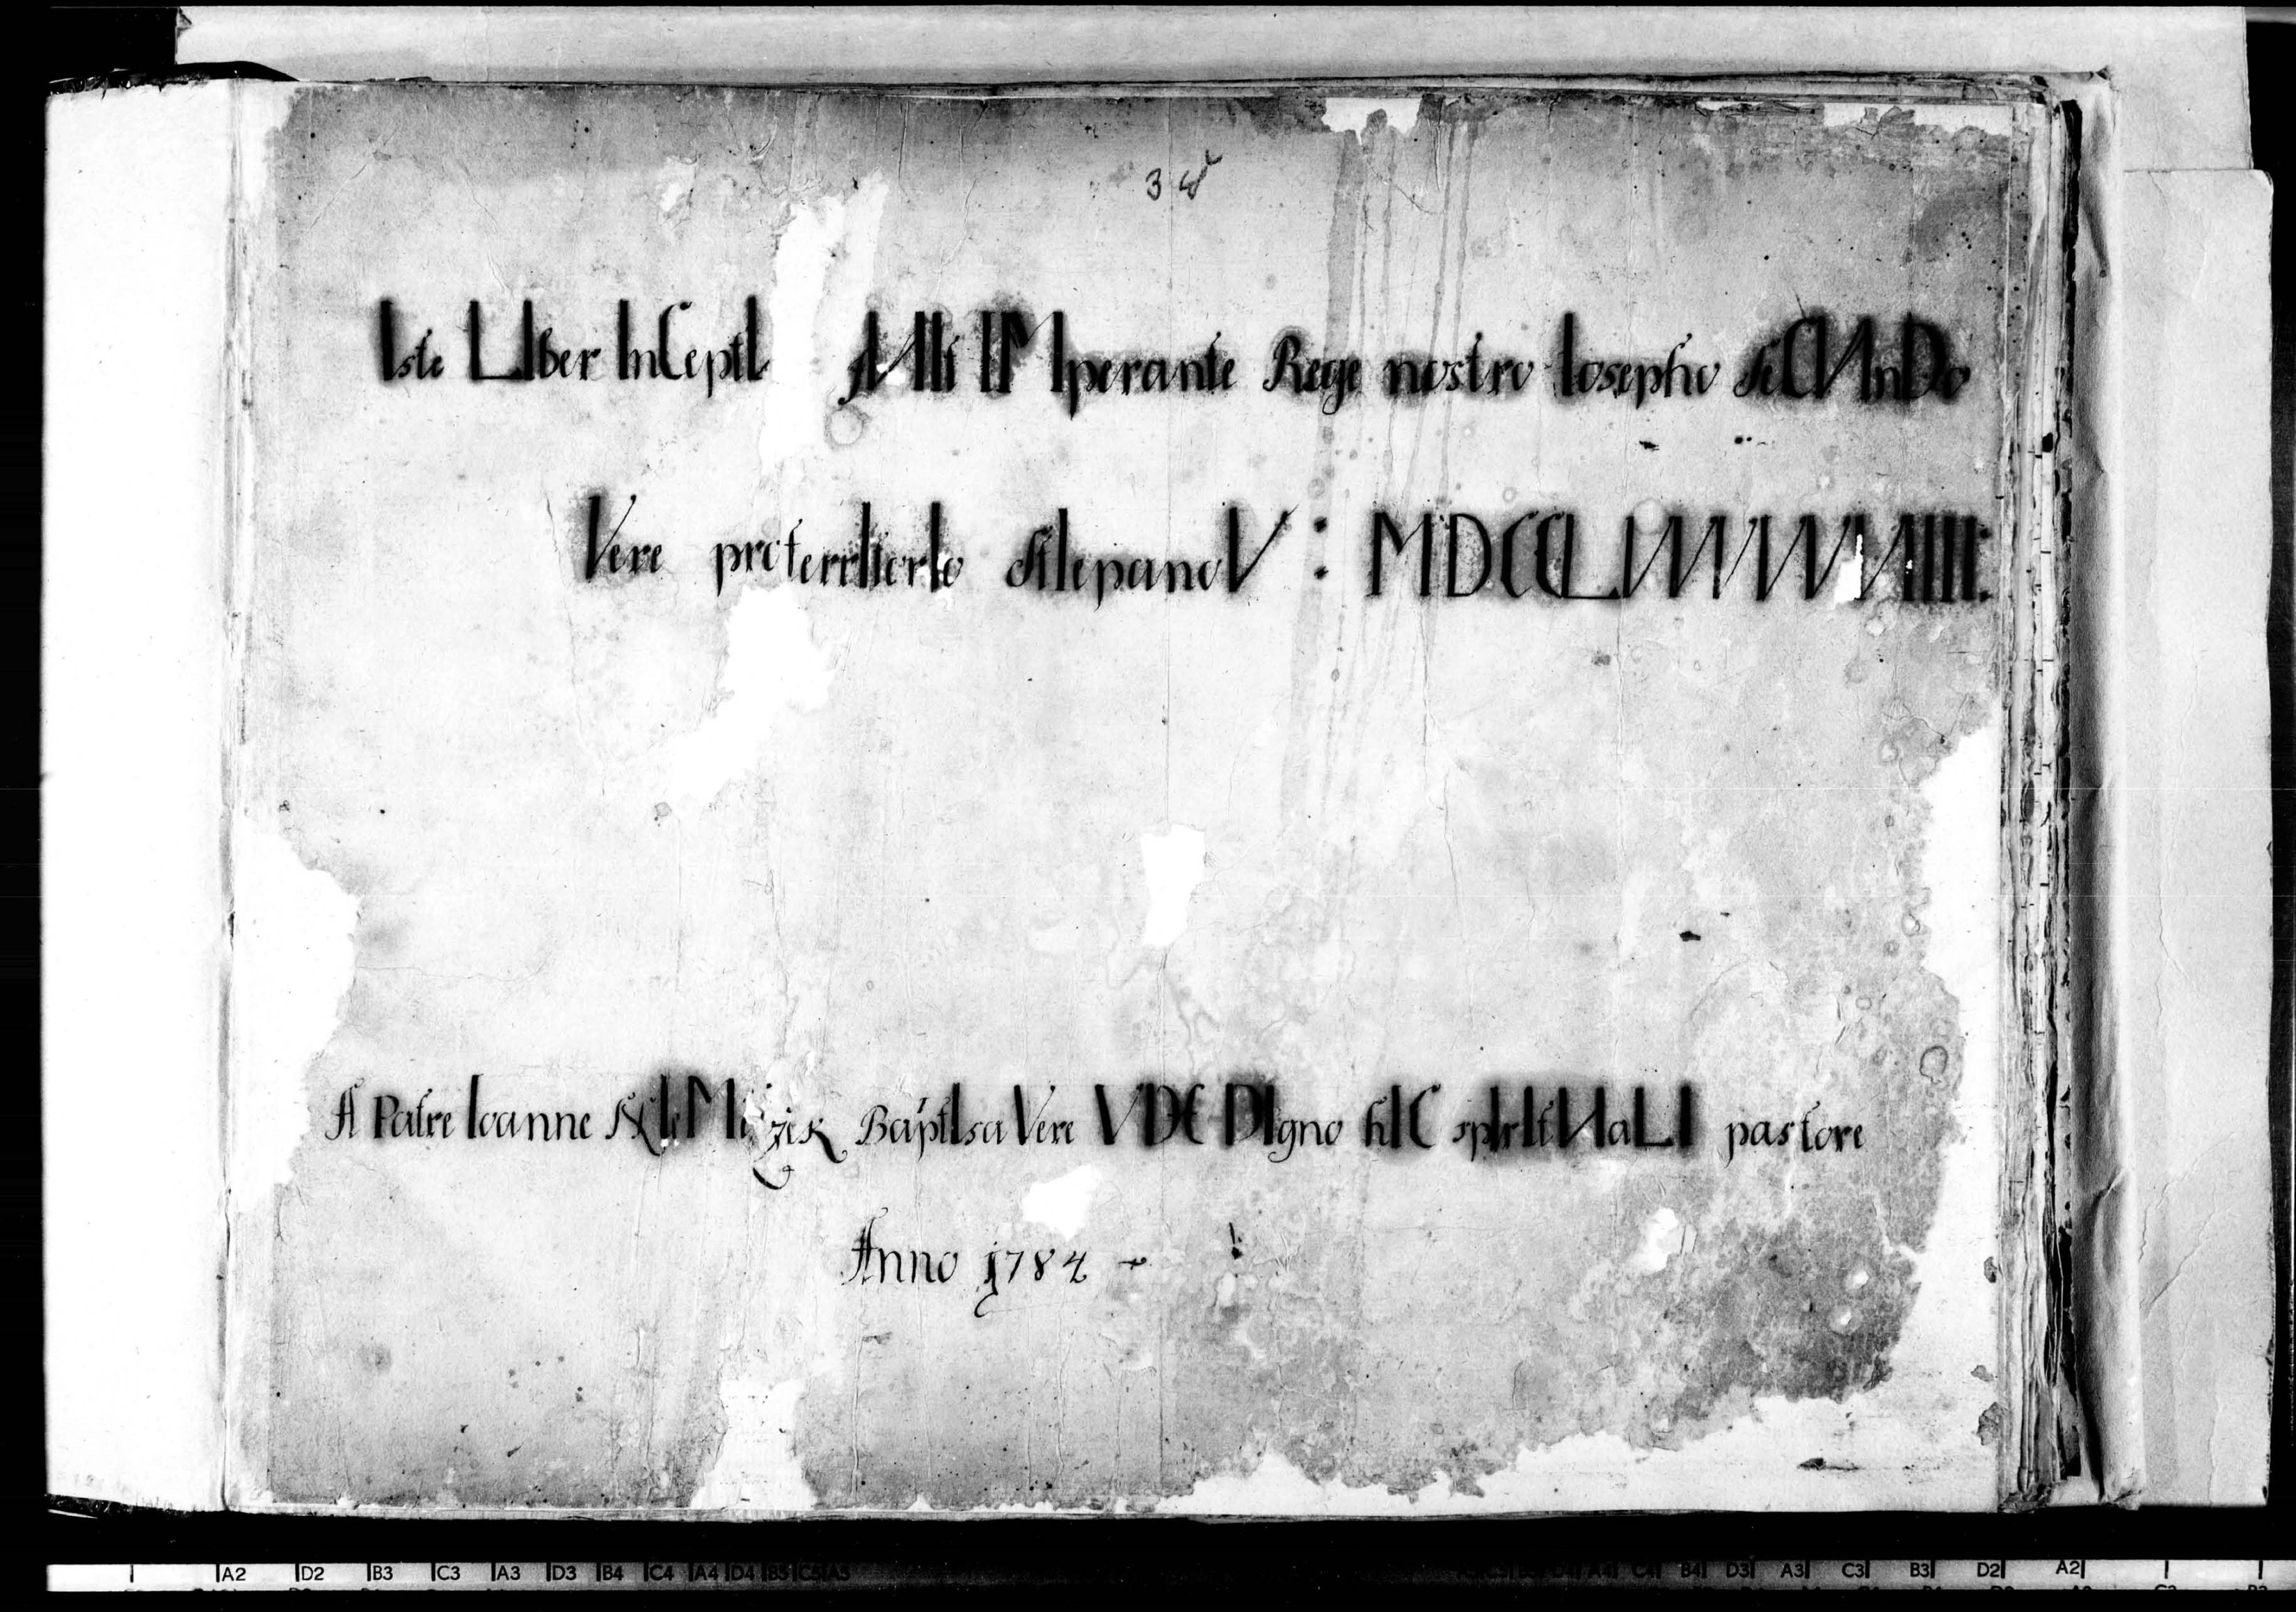 34
Iste LIber InCeptI fVIt IMperante Rege nostro Iosepho seCVnDo
Vere pro territorIo StIepanoV : MDCCLVVVVVVIIII.
A Patre Ioanne BaptIsa Vere VDE DIgno hIC spIrItVaLI pastore
Anno 1784
A2 D2 B3 C3 A3 D3 B4 C4 A4 D4 B5 C5 A5 C4 B4 D3 A3 C3 B3 D2 A2